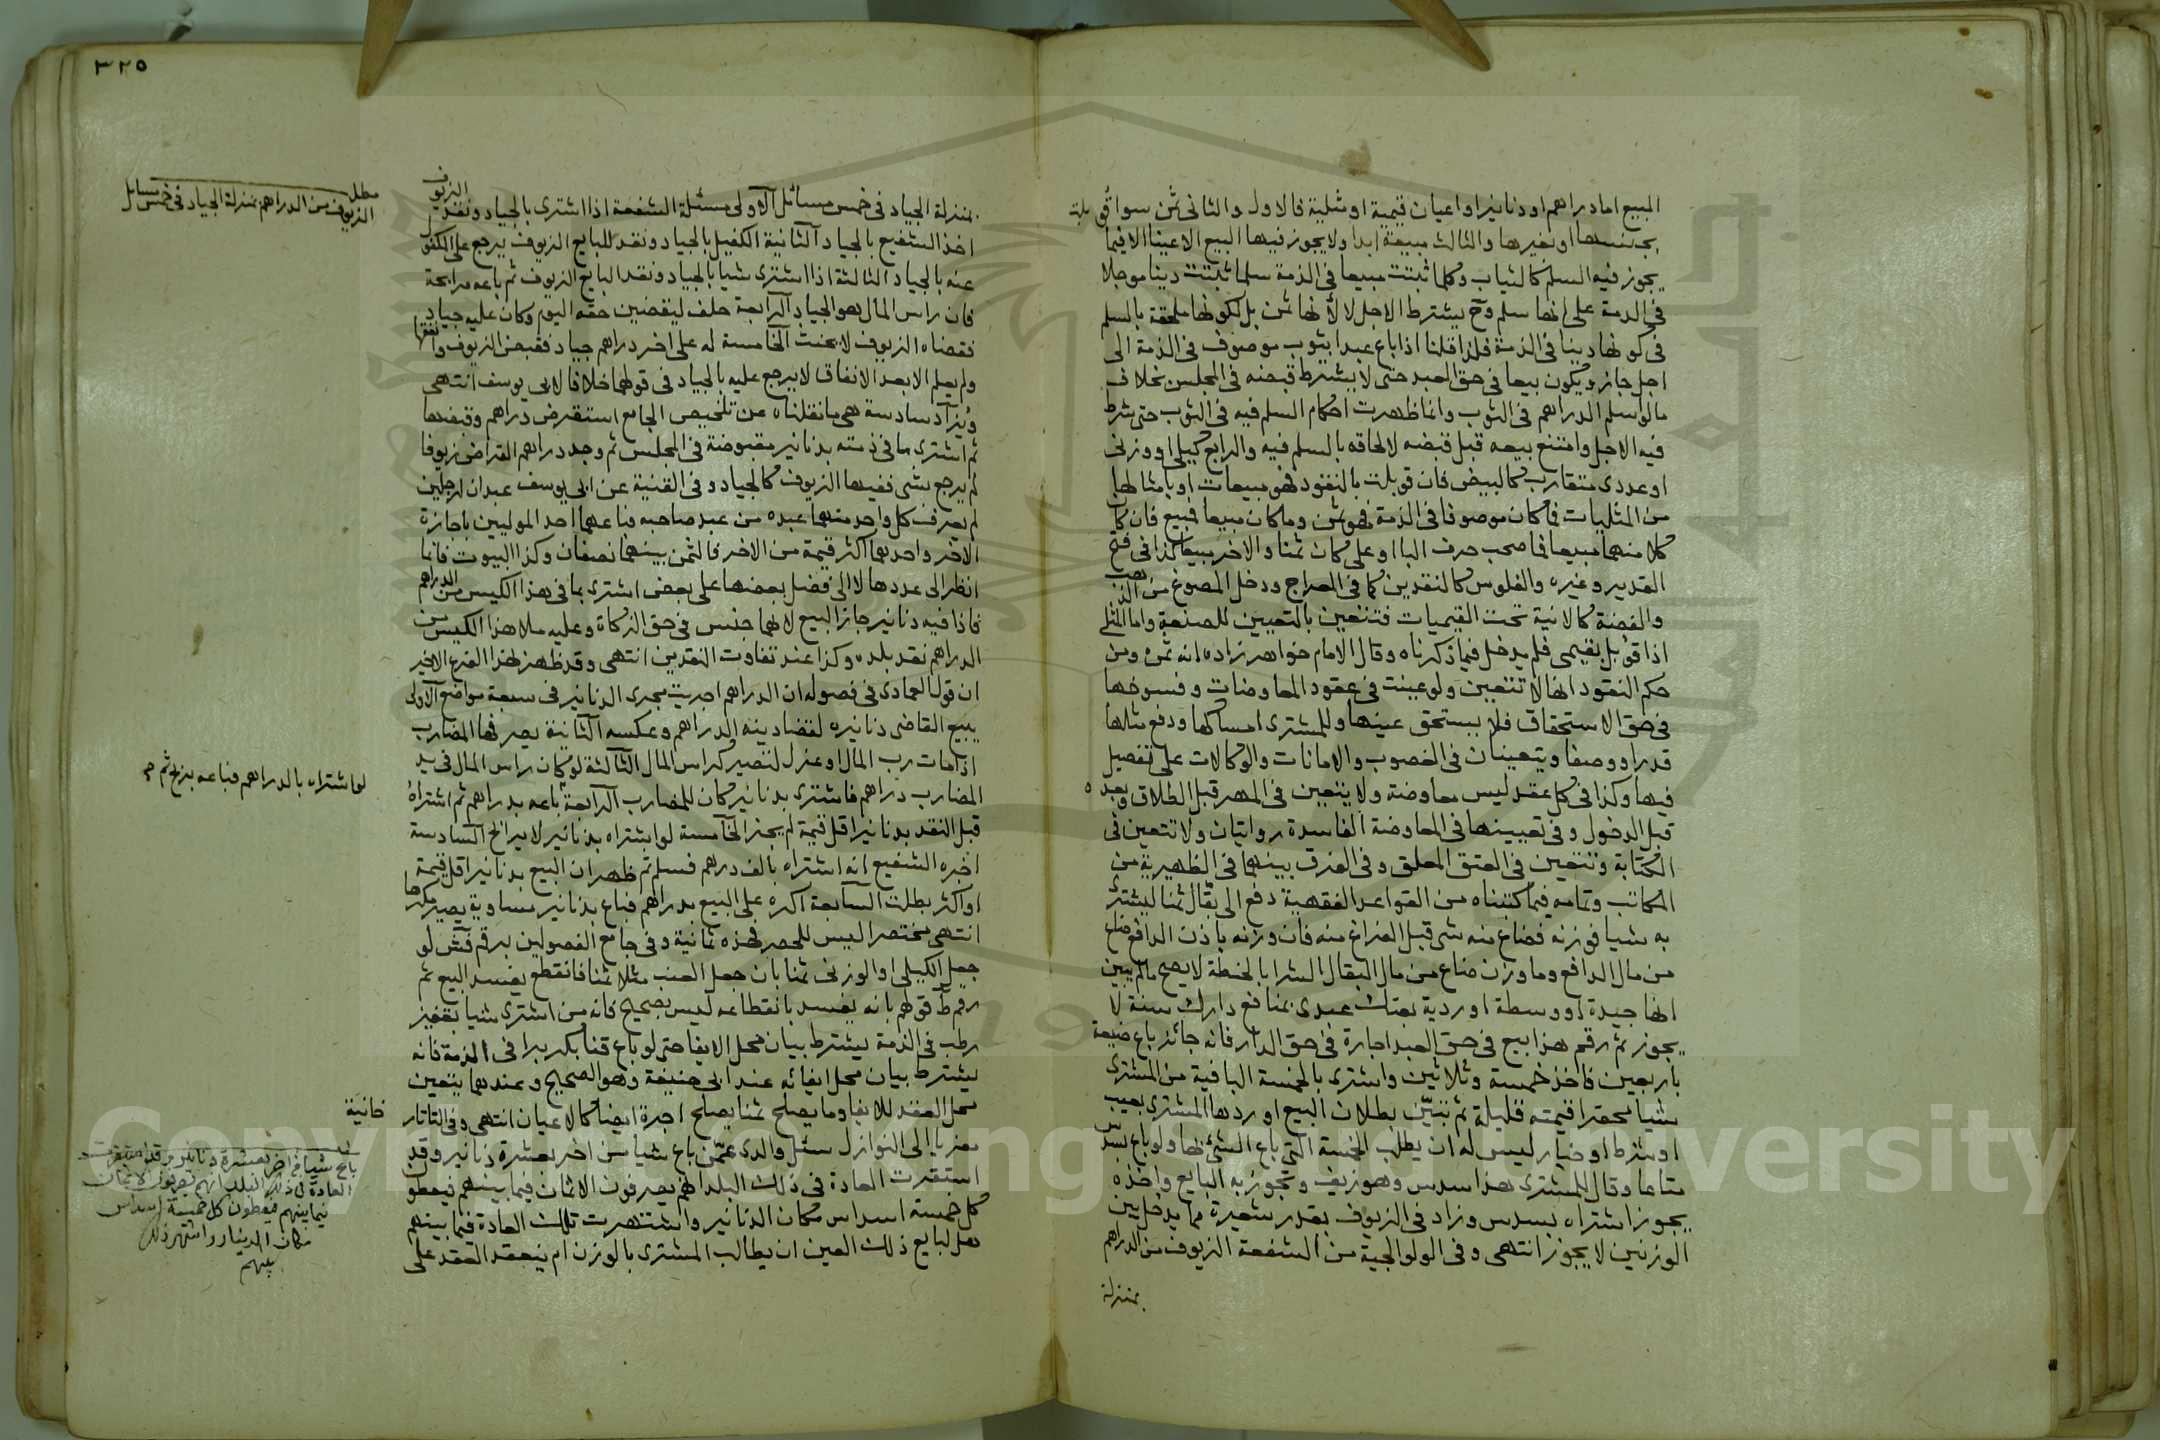 المبيع اما دراهم او دنانير او اعيان قيمية او مثلية فالاول والثاني ثمن سوا قوبلت
بجنسها او بغيرها والثالث مبيعة ابدا ولا يجوز فيها البيع الا عينا الا فيما
يجوز فيه السلم كالثياب وكلما ثبتت مبيعا في الذمة سلما ثبتت دينا موجلا
في الذمة على انها سلم وح يشترط الاجل لا لانها ثمن بل لكونها ملحقة بالسلم
في كونها دينا في الذمة فلذا قلنا اذا باع عبدا بثوب موصوف في الذمة الى
اجل جاز ويكون بيعا في حق العبد حتى لا يشترط قبضه في المجلس بخلاف
ما لو اسلم الدراهم في الثوب وانما ظهرت احكام السلم فيه في الثوب حتى شرط
فيه الاجل وامتنع بيعه قبل قبضه لالحاقه بالسلم فيه والرابع كيلي او وزني
او عددي متقارب كالبيض فان قوبلت بالنقود فهو مبيعات او بامثالها
من المثليات فما كان موصوفا في الذمة فهو ثمن وما كان مبيعا فمبيع فان كان
كلا منهما مبيعا فما صحب حرف البا او على كان ثمنا والاخر مبيعا كذا في فتح
القدير وغيره والفلوس كالنقدين كما في المعراج ودخل المصوغ من الذهب
والفضة كالانية تحت القيميات فتتعين بالتعيين للصنعة واما المثلي
اذا قوبل بقيمي فلم يدخل فيما ذكرناه وقال الامام خواهر زاده انه ثمن ومن
حكم النقود انها لا تتعين ولو عينت في عقود المعاوضات وفسوخها
في حق الاستحقاق فلا يستحق عينها وللمشتري امساكها ودفع مثلها
قدرا ووصفا ويتعينان في الغصوب والامانات والوكالات على تفصيل
فيها وكذا في كل عقد ليس معاوضة ولا يتعين في المهر قبل الطلاق وبعده
قبل الدخول وفي تعيينها في المعاوضة الفاسدة روايتان ولا تتعين في
الكتابة وتتعين في العتق المعلق وفي الفرق بينهما في الظهيرية من
المكاتب وتمامه فيما كتبناه من القواعد الفقهية دفع الى بقال ثمنا ليشتري
به شيا فوزنه فضاع منه شي قبل الفراغ منه فان وزنه باذن الدافع ضاع
من مال الدافع وما وزن ضاع من مال البقال الشرا بالحنطة لا يصح مالم يبين
انها جيدة او وسطة او ردية بعتك عبدي بمنافع دارك سنة لا
يجوز ثم رقم هذا بيع في حق العبد اجارة في حق الدار فانه جائز باع ضيعة
باربعين فاخذ خمسة وثلاثين واشترى بالخمسة الباقية من المشتري
شيا محقرا قيمته قليلة ثم تبين بطلان البيع او ردها المشتري بعيب
او شرط او خيار ليس له ان يطلب الخمسة التي باع الشئ بها ولو باع بستة
متاعا وقال للمشتري هذا سدس وهو زيف وتجوز به البايع واخذه
يجوز اشتراه بسدس وزاد في الزيوف بقدر شعيرة مما يدخل بين
الوزنين لا يجوز انتهى وفي الولوالجية من الشفعة الزيوف من الدراهم
بمنزلة
٣٢٥
بمنزلة الجياد في خمس مسائل الاولى مسئلة الشفعة اذا اشترى بالجياد ونقد الزيوف
اخذ الشفيع بالجياد الثانية الكفيل بالجياد ونقد للبايع الزيوف يرجع على المكفول
عنه بالجياد الثالثة اذا اشترى شيا بالجياد ونقد البايع الزيوف ثم باعه مرابحة
فان راس المال هو الجياد الرابعة حلف ليقضين حقه اليوم وكان عليه جياد
فقضاه الزيوف لا يحنث الخامسة له على اخر دراهم جياد فقبض الزيوف وانفقها
ولم يعلم الا بعد الانفاق لا يرجع عليه بالجياد في قولهما خلافا لابي يوسف انتهى
ويزاد سادسة هي ما نقلناه عن تلخيص الجامع استقرض دراهم وقبضها
ثم اشترى ما في ذمته بدنانير مقبوضة في المجلس ثم وجد دراهم القراض زيوفا
لم يرجع بشي ففيها الزيوف كالجياد وفي القنية عن ابي يوسف عبدان لرجلين
لم يعرف كل واحد منهما عبده من عبد صاحبه فباعهما احد الموليين باجازة
الاخر واحدهما اكثر قيمة من الاخر فالثمن بينهما نصفان وكذا البيوت فانما
انظر الى عددها لا الى فضل بعضها على بعض اشترى بما في هذا الكيس من الدراهم
فاذا فيه دنانير جاز البيع لانهما جنس في حق الزكاة وعليه ملا هذا الكيس من
الدراهم نقد بلده وكذا عند تفاوت النقدين انتهى وقد ظهر لهذا الفرع الاخير
ان قول العمادي في فصوله ان الدراهم اجريت مجرى الدنانير في سبعة مواضع الاولى
يبيع القاضي دنانيره لقضا دينه الدراهم وعكسه الثانية يصرفها المضارب
اذا مات رب المال او عزل لتصير كراس المال الثالثة لو كان راس المال في يد
المضارب دراهم فاشترى بدنانير كان للمضارب الرابعة باعه بدراهم ثم اشتراه
قبل النقد بدنانير اقل قيمة لم يجز الخامسة لو اشتراه بدنانير لا يرابح السادسة
اخبره الشفيع انه اشتراه بالف درهم فسلم ثم ظهر ان البيع بدنانير اقل قيمة
او اكثر بطلت السابعة اكره على البيع بدراهم فباع بدنانير مساوية يصير مكرها
انتهى مختصرا ليس للحصر فهذه ثمانية وفي جامع الفصولين برقم فش لو
جعل الكيلي او الوزني ثمنا بان جعل العنب مثلا ثمنا فانقطع يفسد البيع ثم
رقم ط قولهم بانه يفسد بانقطاعه ليس بصحيح فانه من اشترى شيا بقفيز
رطب في الذمة يشترط بيان محل الايفا حتى لو باع قنا بكر برا في الذمة فانه
يشترط بيان محل ايفائه عند ابي حنيفة وهو الصحيح وعندهما يتعين
محل العقد للايفا وما يصلح ثمنا يصلح اجرة ايضا كالاعيان انتهى وفي التاتار
معزيا الى النوازل سئل والدي عمن باع شيا من اخر بعشرة دنانير وقد
استقرت العادة في ذلك البلد انهم يصرفون الاثمان فيما بينهم فيعطو
كل خمسة اسداس مكان الدنانير واشتهرت تلك العادة فيما بينهم
هل لبايع ذلك العين ان يطالب المشتري بالوزن ام ينعقد العقد على
مطل
الزيوف من الدراهم بمنزلة الجياد في خمس مسائل
لو اشتراه بالدراهم فباعه بربح ثم
خانية
باع شيا من اخر بعشرة دنانير وقد استقرت
العادة في ذلك البلد انهم يصرفون الاثمان
فيما بينهم فيعطون كل خمسة اسداس
مكان الدينار واشتهر ذلك
بينهم
Copyright King Saud University